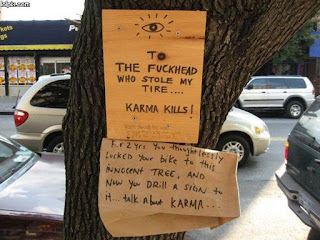 To
THE FUCKHEAD
WHO STOLE MY
TIRE....
KARMA KILLS!
For 2 yrs you thoughtlessly
locked your bike to this
INNOCENT TREE, AND
NOW YOU DRILL A SIGN TO
it... talk About KARMA...